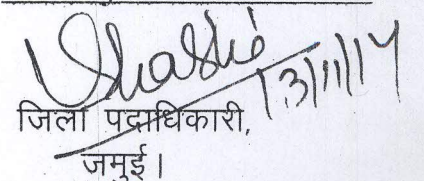 Shashi
13/11/14
जिला पदाधिकारी,
जमुई।